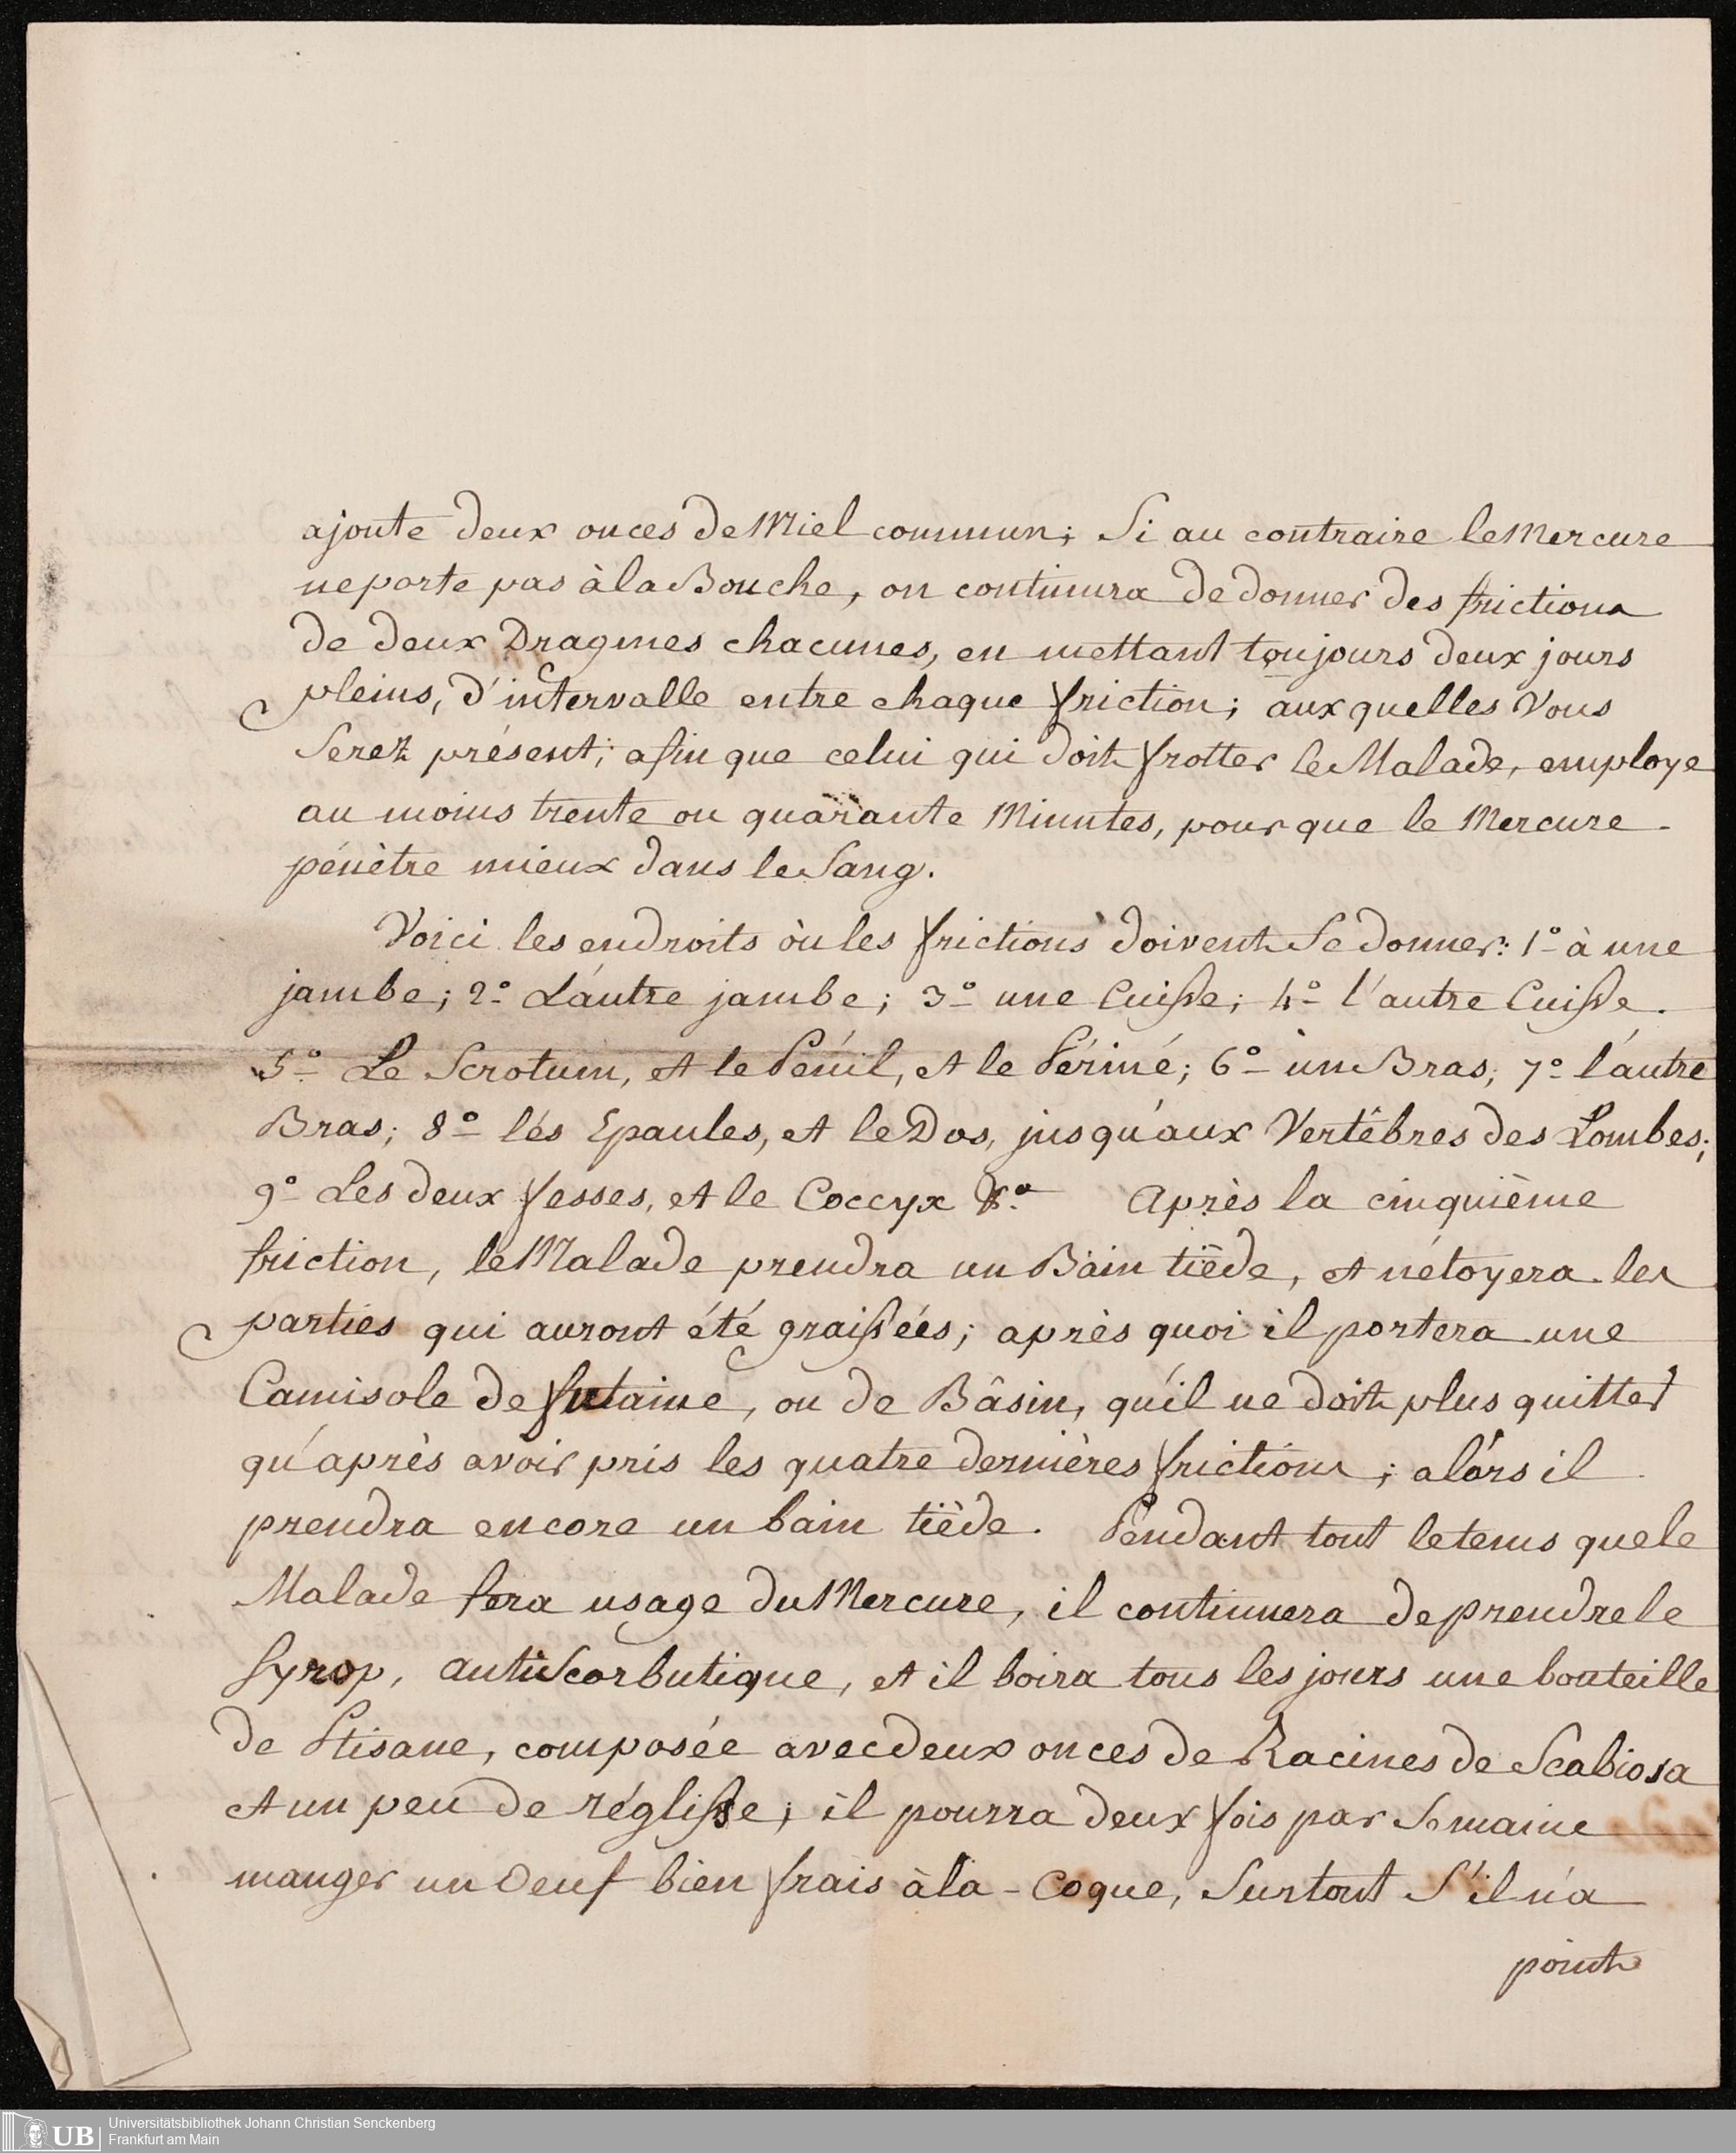 ajoute deux onces de Miel commun; Si au contraire le Mercure
ne porte pas à la Bouche, on continura de donner des frictions
de deux Dragmes chacunes, en mettant toujours deux jours
pleins, d'intervalle entre chaque friction; aux quelles Vous
Serez présent; afin que celui qui doit frotter le Malade, employe
au moins trente ou quarante Minutes, pour que le Mercure
pénètre mieux dans le Sang.
Voici les endroits où les frictions doivent Se donner: 1º à une
jambe; 2º L'autre jambe; 3º une Cuisse; 4º l'autre Cuisse.
5º Le Scrotum, et le Pénil, et le Périné; 6º un Bras; 7º l'autre
Bras; 8º lés Epaules, et le Dos, jusqu'aux Vertêbres des Lombes;
9º Les deux fesses, et le Coccyx &ª Après la cinquième
friction, le Malade prendra un Bain tiède, et nétoyera les
parties qui auront été graissées; après quoi il portera une
Camisole de futaine, ou de Bâsin, qu'il ne doit plus quitter
qu'après avoir pris les quatre dernières frictions; alórs il
prendra encore un bain tiède. Pendant tout le tems que le
Malade fera usage du Mercure, il continuera de prendre le
Syrop, antiScorbutique, et il boira tous les jours une bouteille
de Ptisane, composée avec deux onces de Racines de Scabiosa
et un peu de réglisse; il pourra deux fois par Semaine
manger un Oeuf bien frais à la - Coque, Surtout S'il n'a
point
Universitätsbibliothek Johann Christian Senckenberg
UB Frankfurt am Main